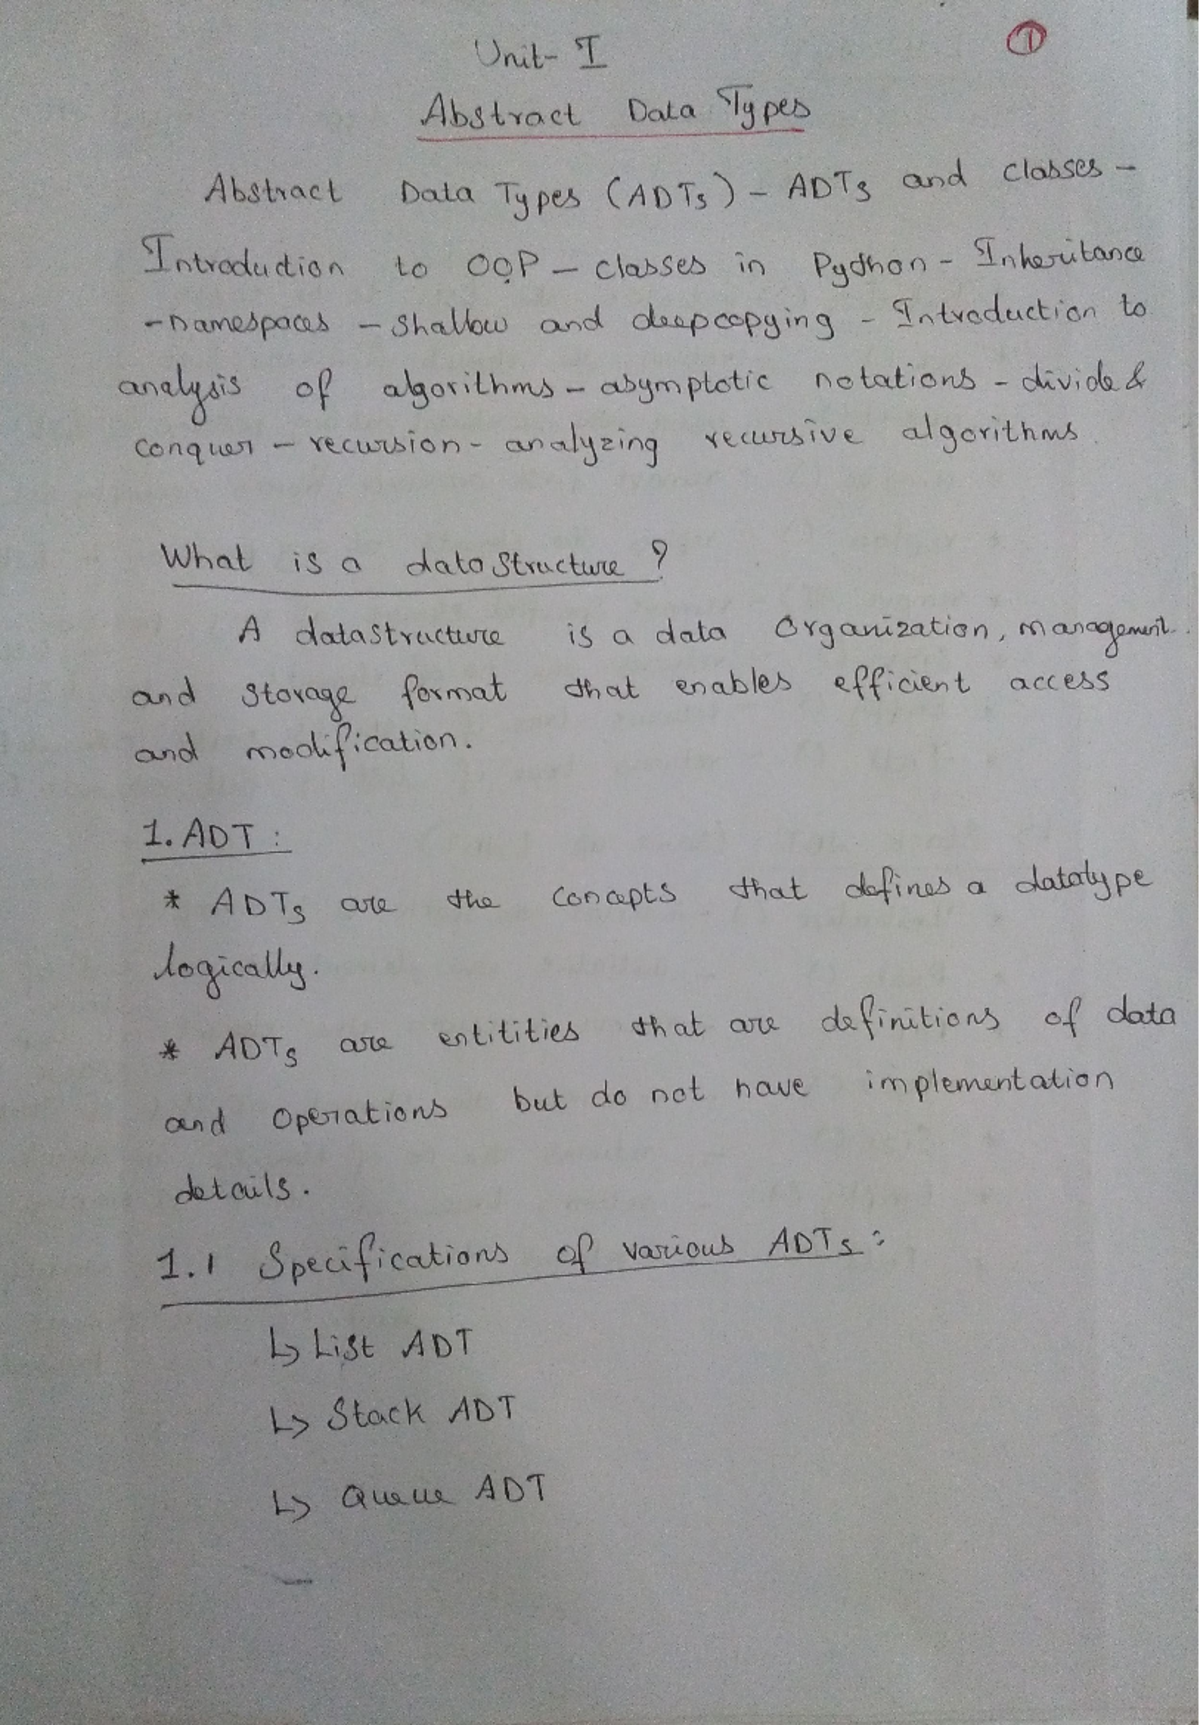 ①
Unit- I
Abstract Data Types
Abstract Data Types (ADTs) - ADTs and classes -
Introduction to OOP - classes in Python - Inheritance
- namespaces - shallow and deepcopying - Introduction to
analysis of algorithms - asymptotic notations - divide &
conquer - recursion - analyzing recursive algorithms.
What is a datastructure?
A datastructure is a data Organization, management
and storage format that enables efficient access
and modification.
1. ADT:
* ADTs are the concepts that defines a datatype
logically.
* ADTs are entitities that are definitions of data
and operations but do not have implementation
details.
1.1 Specifications of various ADTs:
↳ List ADT
↳ Stack ADT
↳ Queue ADT